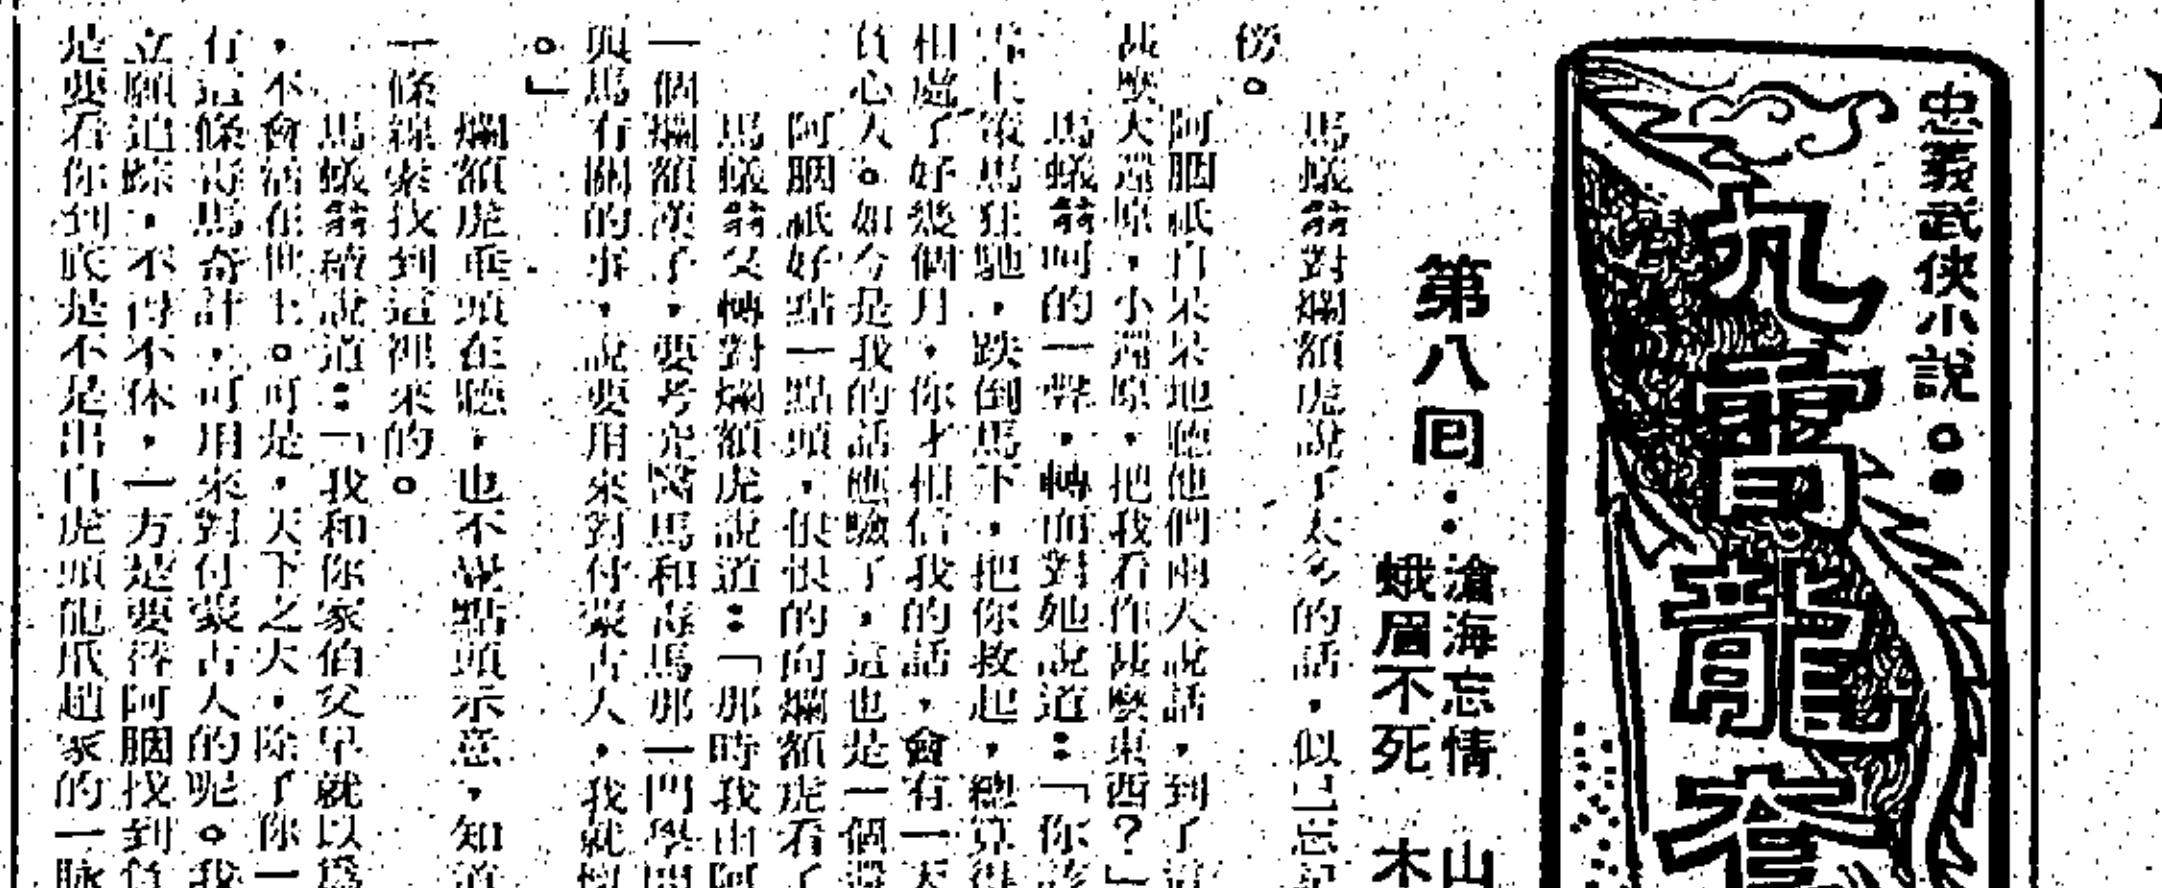 忠義武俠小說
九霄龍吟
第八回：滄海忘情 山
蛾眉不死 木
馬蟻翁對爛額虎說了太多的話，似已忘記
傍。
阿胭祇自呆呆地聽他們兩人說話，到了這
甚麼大還原，小還原，把我看作甚麼東西？」
馬蟻翁呵的一聲，轉面對她說道：「你該
上策馬狂馳，跌倒馬下，把你救起，總算
相處了好幾個月，你才相信我的話，會有一天
負心人。如今是我的話應驗了，這也是一個還
阿胭祇好點一點頭，恨恨的向爛額虎看了
馬蟻翁又轉對爛額虎說道：「那時我由阿
一個爛額漢了，要考究醫馬和毒馬那一門學問
與馬有關的事，說要用來對付蒙古人，我就
。」
爛額虎垂頭在聽，也不點頭示意，知道
一條線索找到這裡來的。
馬蟻翁續說道：「我和你家伯父早就以爲
，不會活在世上。可是，天下之大，除了你一
有這條毒馬奇計，可用來對付蒙古人的呢。我
立願追踪，不得不休，一方是要替阿胭找到負
是要看你到底是不是出自虎頭龍爪趙家的一脉